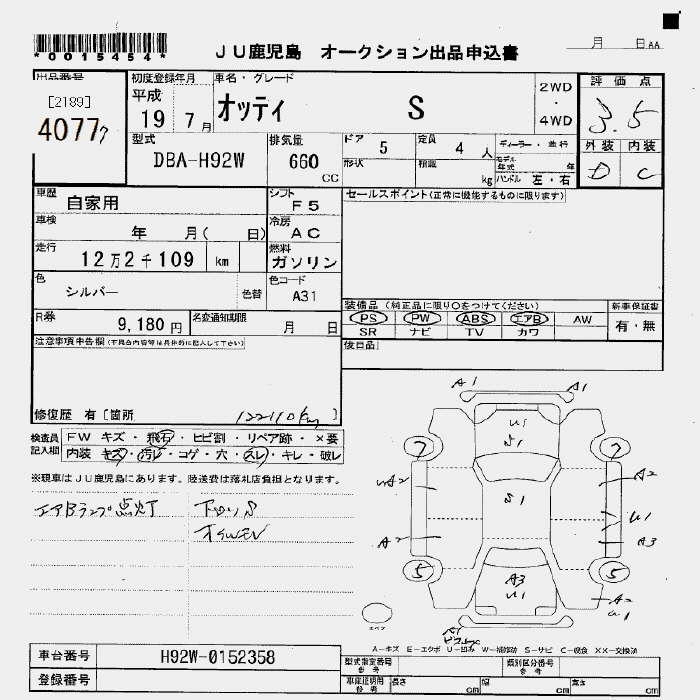 *0015454*
JU鹿児島 オークション出品申込書
月 日 AA
出品番号 初度登録年月 車名・グレード 評価点
[2189]
40777
平成
19 7月
オッティ S
2WD
・
4WD
3.5
型式 排気量 ドア 5 定員 4 人 ディーラー・並行 外装 内装
DBA-H92W 660 CC
形状 積載 kg モデル年式 年
ハンドル 左・右
D C
車歴 自家用 シフト F5 セールスポイント(正常に機能するものに限ります)
車検 年 月( 日) 冷房 AC
走行 12万2千109 km 燃料 ガソリン
色 シルバー 色替 色コード A31
装備品 (純正品に限り○をつけてください) 新車保証書
R券 9,180円 名変通知期限 月 日
PS PW ABS エアB AW 有・無
SR ナビ TV カワ
注意事項申告欄(不具合内容等は具体的に記入して下さい) 後日品
修復歴 有 [箇所 122110km
検査員 FW キズ・飛石・ヒビ割・リペア跡・×要
記入欄 内装 キズ・汚レ・コゲ・穴・スレ・キレ・破レ
※現車はJU鹿児島にあります。陸送費は落札店負担となります。
エアBランプ点灯 下回りS
A1 A1
U1
S1
7 7
A2 A2
S1
U1
A2 A3
5 5
A3
U1
A2
U1
A1
スペア
A-キズ E-エクボ U-凹み W-補修跡 S-サビ C-腐食 XX-交換済
車台番号 H92W-0152358 型式指定番号 類別区分番号
登録番号 車庫証明用 長さ cm 幅 cm 高さ cm
参考 参考